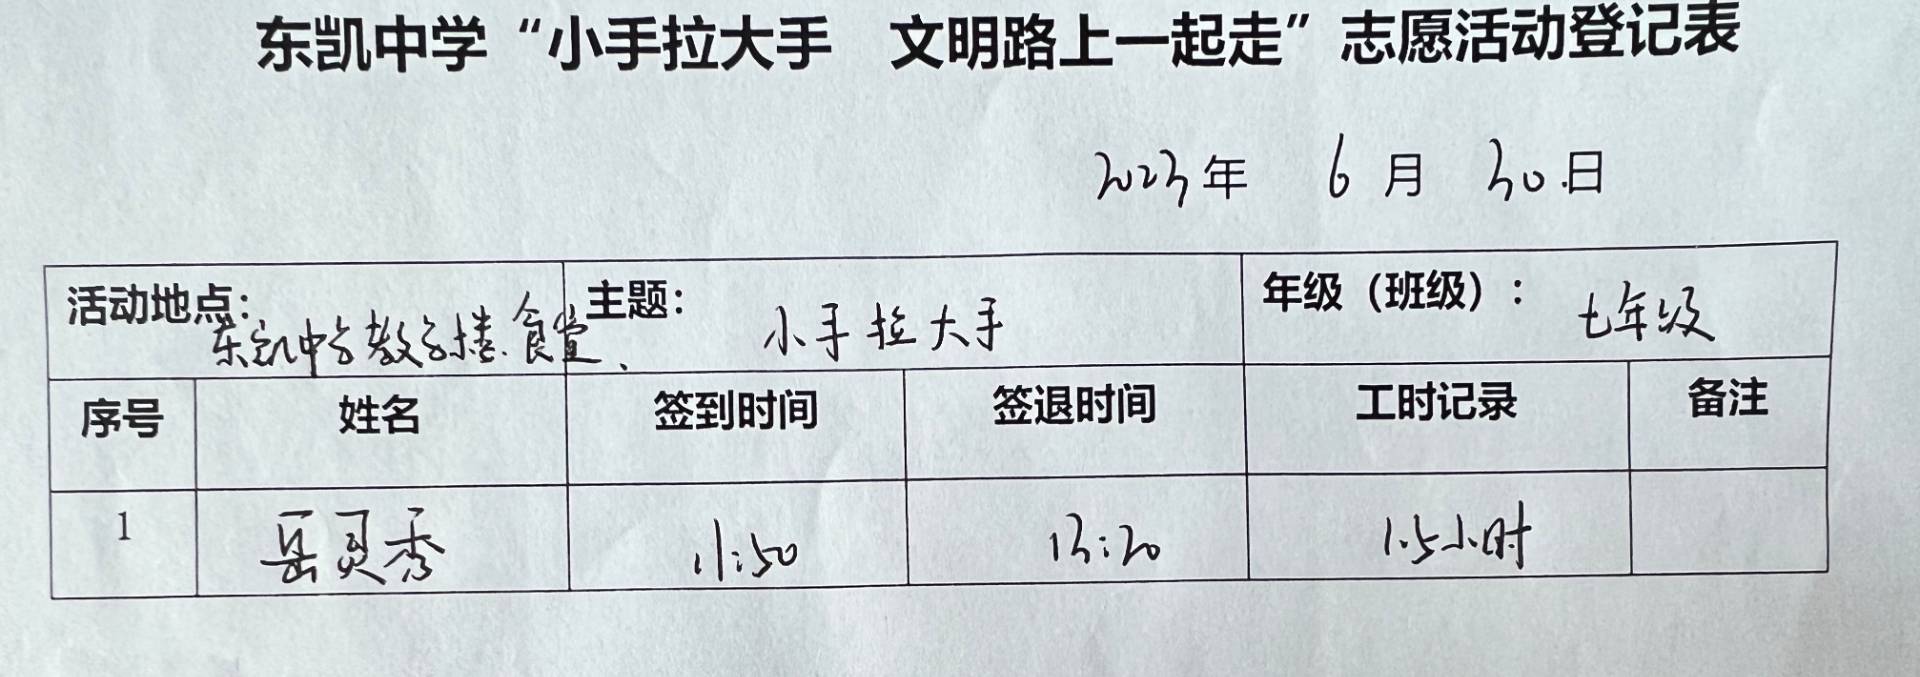 东凯中学“小手拉大手 文明路上一起走”志愿活动登记表
2023年 6月 30日
活动地点：东凯中学教学楼.食堂、 主题： 小手拉大手 年级（班级）： 七年级
序号 姓名 签到时间 签退时间 工时记录 备注
1 岳灵秀 11:50 13:20 1.5小时